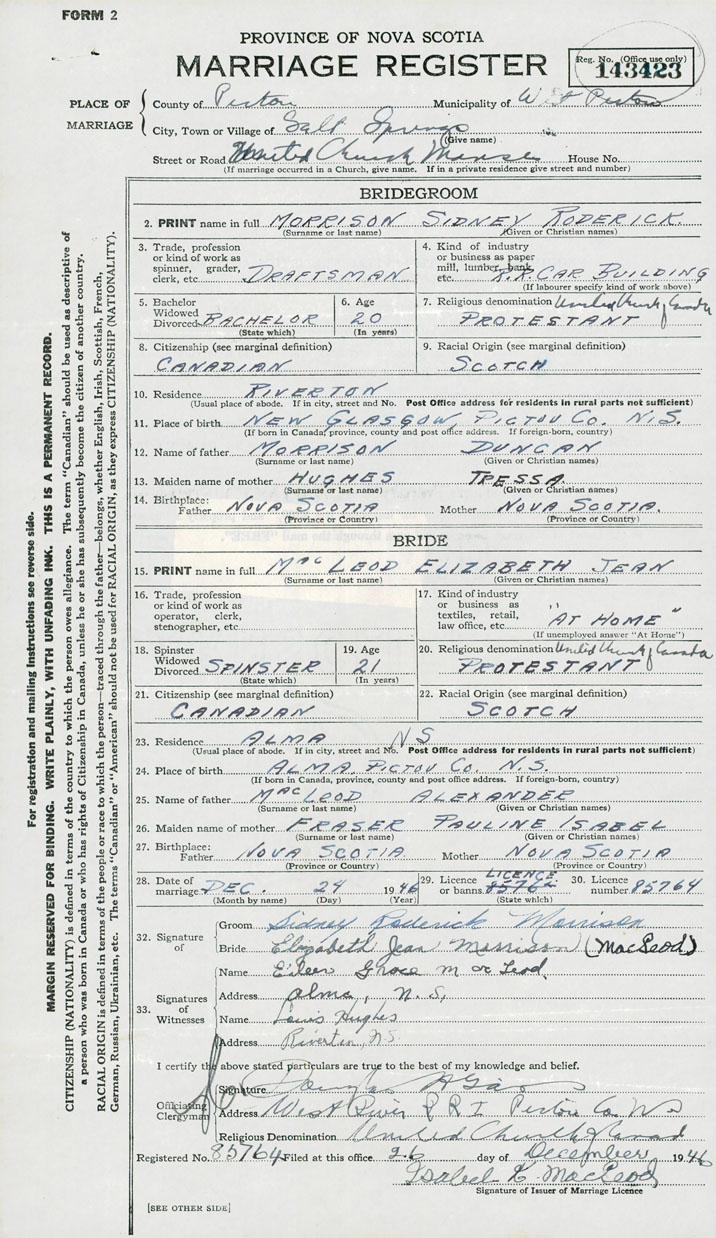 FORM 2
PROVINCE OF NOVA SCOTIA
MARRIAGE REGISTER
Reg. No. (Office use only)
143423
PLACE OF MARRIAGE
County of Pictou Municipality of West Pictou
City, Town or Village of Salt Springs
(Give name)
Street or Road United Church Manse House No.
(If marriage occurred in a Church, give name. If in a private residence give street and number)
BRIDEGROOM
2. PRINT name in full MORRISON SIDNEY RODERICK.
(Surname or last name) (Given or Christian names)
3. Trade, profession or kind of work as spinner, grader, clerk, etc. DRAFTSMAN
4. Kind of industry or business as paper mill, lumber, bank, etc. R.R. CAR BUILDING
(If labourer specify kind of work above)
5. Bachelor Widowed Divorced BACHELOR
(State which)
6. Age 20
(In years)
7. Religious denomination United Church of Canada
PROTESTANT
8. Citizenship (see marginal definition)
CANADIAN
9. Racial Origin (see marginal definition)
SCOTCH
10. Residence RIVERTON
(Usual place of abode. If in city, street and No. Post Office address for residents in rural parts not sufficient)
11. Place of birth NEW GLASGOW, PICTOU CO. N.S.
(If born in Canada, province, county and post office address. If foreign-born, country)
12. Name of father MORRISON DUNCAN
(Surname or last name) (Given or Christian names)
13. Maiden name of mother HUGHES TRESSA.
(Surname or last name) (Given or Christian names)
14. Birthplace: Father NOVA SCOTIA Mother NOVA SCOTIA.
(Province or Country) (Province or Country)
BRIDE
15. PRINT name in full MacLEOD ELIZABETH JEAN
(Surname or last name) (Given or Christian names)
16. Trade, profession or kind of work as operator, clerk, stenographer, etc.
17. Kind of industry or business as textiles, retail, law office, etc. "AT HOME"
(If unemployed answer "At Home")
18. Spinster Widowed Divorced SPINSTER
(State which)
19. Age 21
(In years)
20. Religious denomination United Church of Canada
PROTESTANT
21. Citizenship (see marginal definition)
CANADIAN
22. Racial Origin (see marginal definition)
SCOTCH
23. Residence ALMA NS
(Usual place of abode. If in city, street and No. Post Office address for residents in rural parts not sufficient)
24. Place of birth ALMA, PICTOU CO. N.S.
(If born in Canada, province, county and post office address. If foreign-born, country)
25. Name of father MacLEOD ALEXANDER
(Surname or last name) (Given or Christian names)
26. Maiden name of mother FRASER PAULINE ISABEL
(Surname or last name) (Given or Christian names)
27. Birthplace: Father NOVA SCOTIA Mother NOVA SCOTIA
(Province or Country) (Province or Country)
28. Date of marriage DEC. 24 1946
(Month by name) (Day) (Year)
29. Licence or banns LICENCE
(State which)
30. Licence number 85764
32. Signature of
Groom Sidney Roderick Morrison
Bride Elizabeth Jean Morrison (MacLeod)
33. Signatures of Witnesses
Name Eileen Grace
Address Alma, N.S.
Name Louis Hughes
Address Riverton, N.S.
I certify the above stated particulars are true to the best of my knowledge and belief.
Officiating Clergyman
Signature Douglas
Address West River R R 1 Pictou Co. N S
Religious Denomination United Church of Canada
Registered No. 85764 Filed at this office 26 day of December 1946
Isabel K. MacLeod
Signature of Issuer of Marriage Licence
[SEE OTHER SIDE]
For registration and mailing instructions see reverse side.
MARGIN RESERVED FOR BINDING. WRITE PLAINLY, WITH UNFADING INK. THIS IS A PERMANENT RECORD.
CITIZENSHIP (NATIONALITY) is defined in terms of the country to which the person owes allegiance. The term "Canadian" should be used as descriptive of
a person who was born in Canada or who has rights of Citizenship in Canada, unless he or she has subsequently become the citizen of another country.
RACIAL ORIGIN is defined in terms of the people or race to which the person—traced through the father—belongs, whether English, Irish, Scottish, French,
German, Russian, Ukrainian, etc. The terms "Canadian" or "American" should not be used for RACIAL ORIGIN, as they express CITIZENSHIP (NATIONALITY).